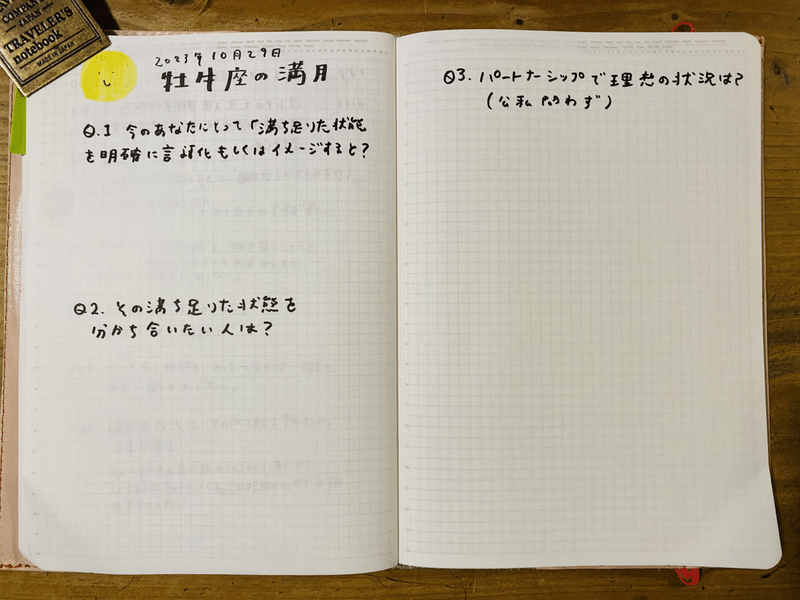 COMPANY
— JAPAN —
TRAVELER'S
notebook
MADE IN JAPAN
2023年10月29日
牡牛座の満月
Q.1 今のあなたにとって「満ち足りた状態
を明確に言語化もしくはイメージすると？
Q2. その満ち足りた状態を
分かち合いたい人は？
Q3. パートナーシップで理想の状況は？
(公私問わず)